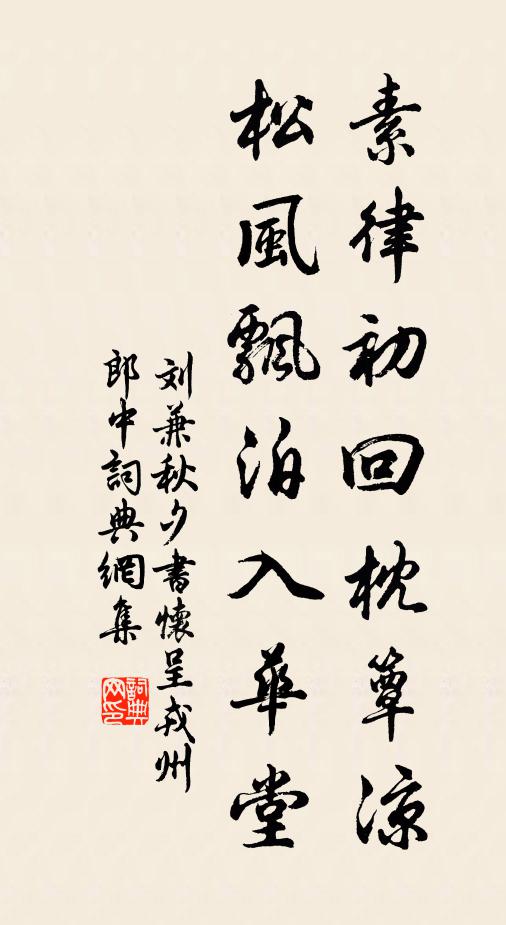 素律初回枕簟涼
松風飄泊入華堂
刘兼秋夕書懷呈戎州
郎中詞典網集
詞典网印